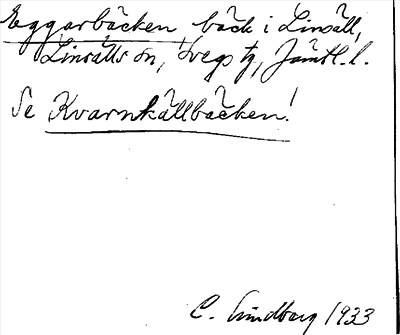 Eggarbäcken, bäck i Linsäll,
Linsälls sn, Svegs tg, Jämtl. l.
Se Kvarnkällbäcken!
C. Lundborg 1933